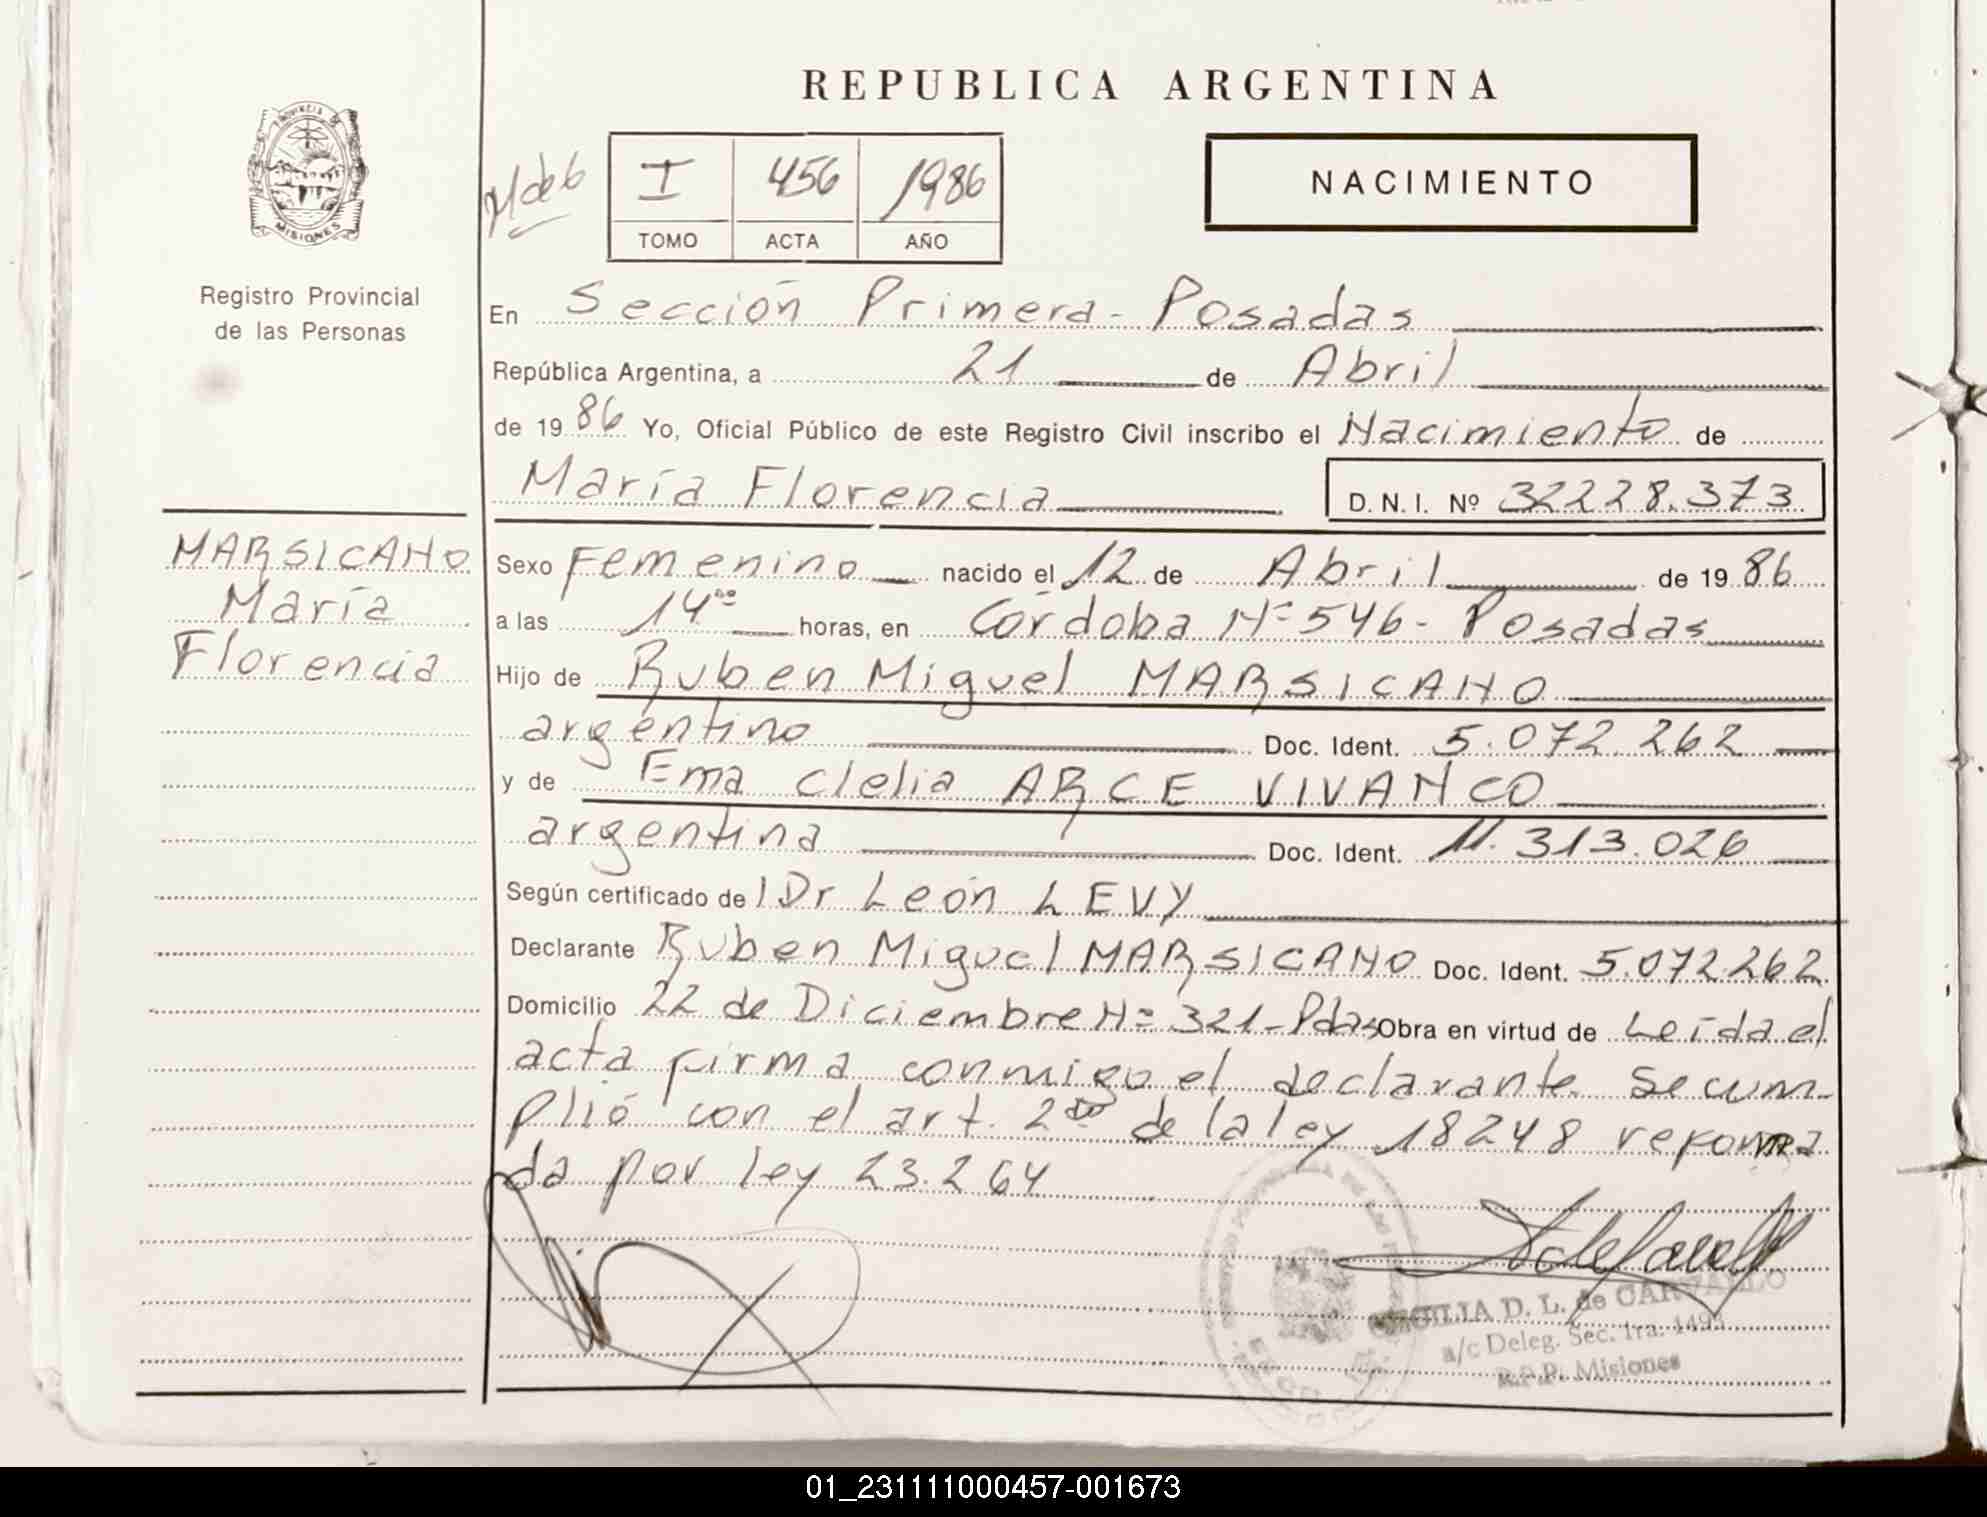 REPUBLICA ARGENTINA
PROVINCIA DE
MISIONES
I 456 1986
TOMO ACTA AÑO
NACIMIENTO
Registro Provincial
de las Personas
En Sección Primera - Posadas
República Argentina, a 21 de Abril
de 1986 Yo, Oficial Público de este Registro Civil inscribo el Nacimiento de
María Florencia D.N.I. Nº 32228.373
MARSICANO
María
Florencia
Sexo Femenino nacido el 12 de Abril de 1986
a las 14 horas, en Córdoba Nº 546 - Posadas
Hijo de Ruben Miguel MARSICANO
argentino Doc. Ident. 5.072.262
y de Ema Clelia ARCE VIVANCO
argentina Doc. Ident. 11.313.026
Según certificado del Dr León LEVY
Declarante Ruben Miguel MARSICANO Doc. Ident. 5.072.262
Domicilio 22 de Diciembre Nº 321 - Pdas Obra en virtud de Leída el
acta firma conmigo el declarante. Se cum-
plió con el art. 2do de la ley 18248 reforma
da por ley 23.264
CECILIA D. L. de CARVALLO
a/c Deleg. Sec. 1ra. 1493
R.P.P. Misiones
01_231111000457-001673